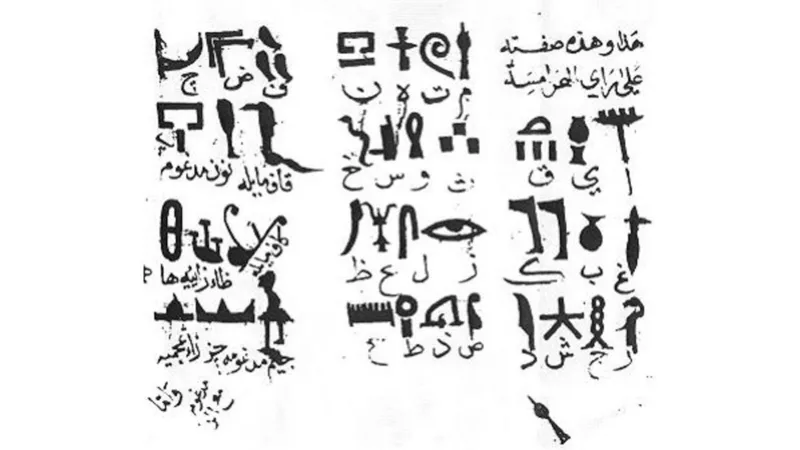 هذا وهذه صفته
على راي الهرامسة
ا ي ق
غ ب ك
ر ج ش د
م ت ه ن
ث و س خ
ز ل ع ظ
ص ذ ط ح
ف ض چ
قاف مايله نون مدغوم
ظاء زاييه ها
جيم مدغومه زاء عجميه
مدغوم